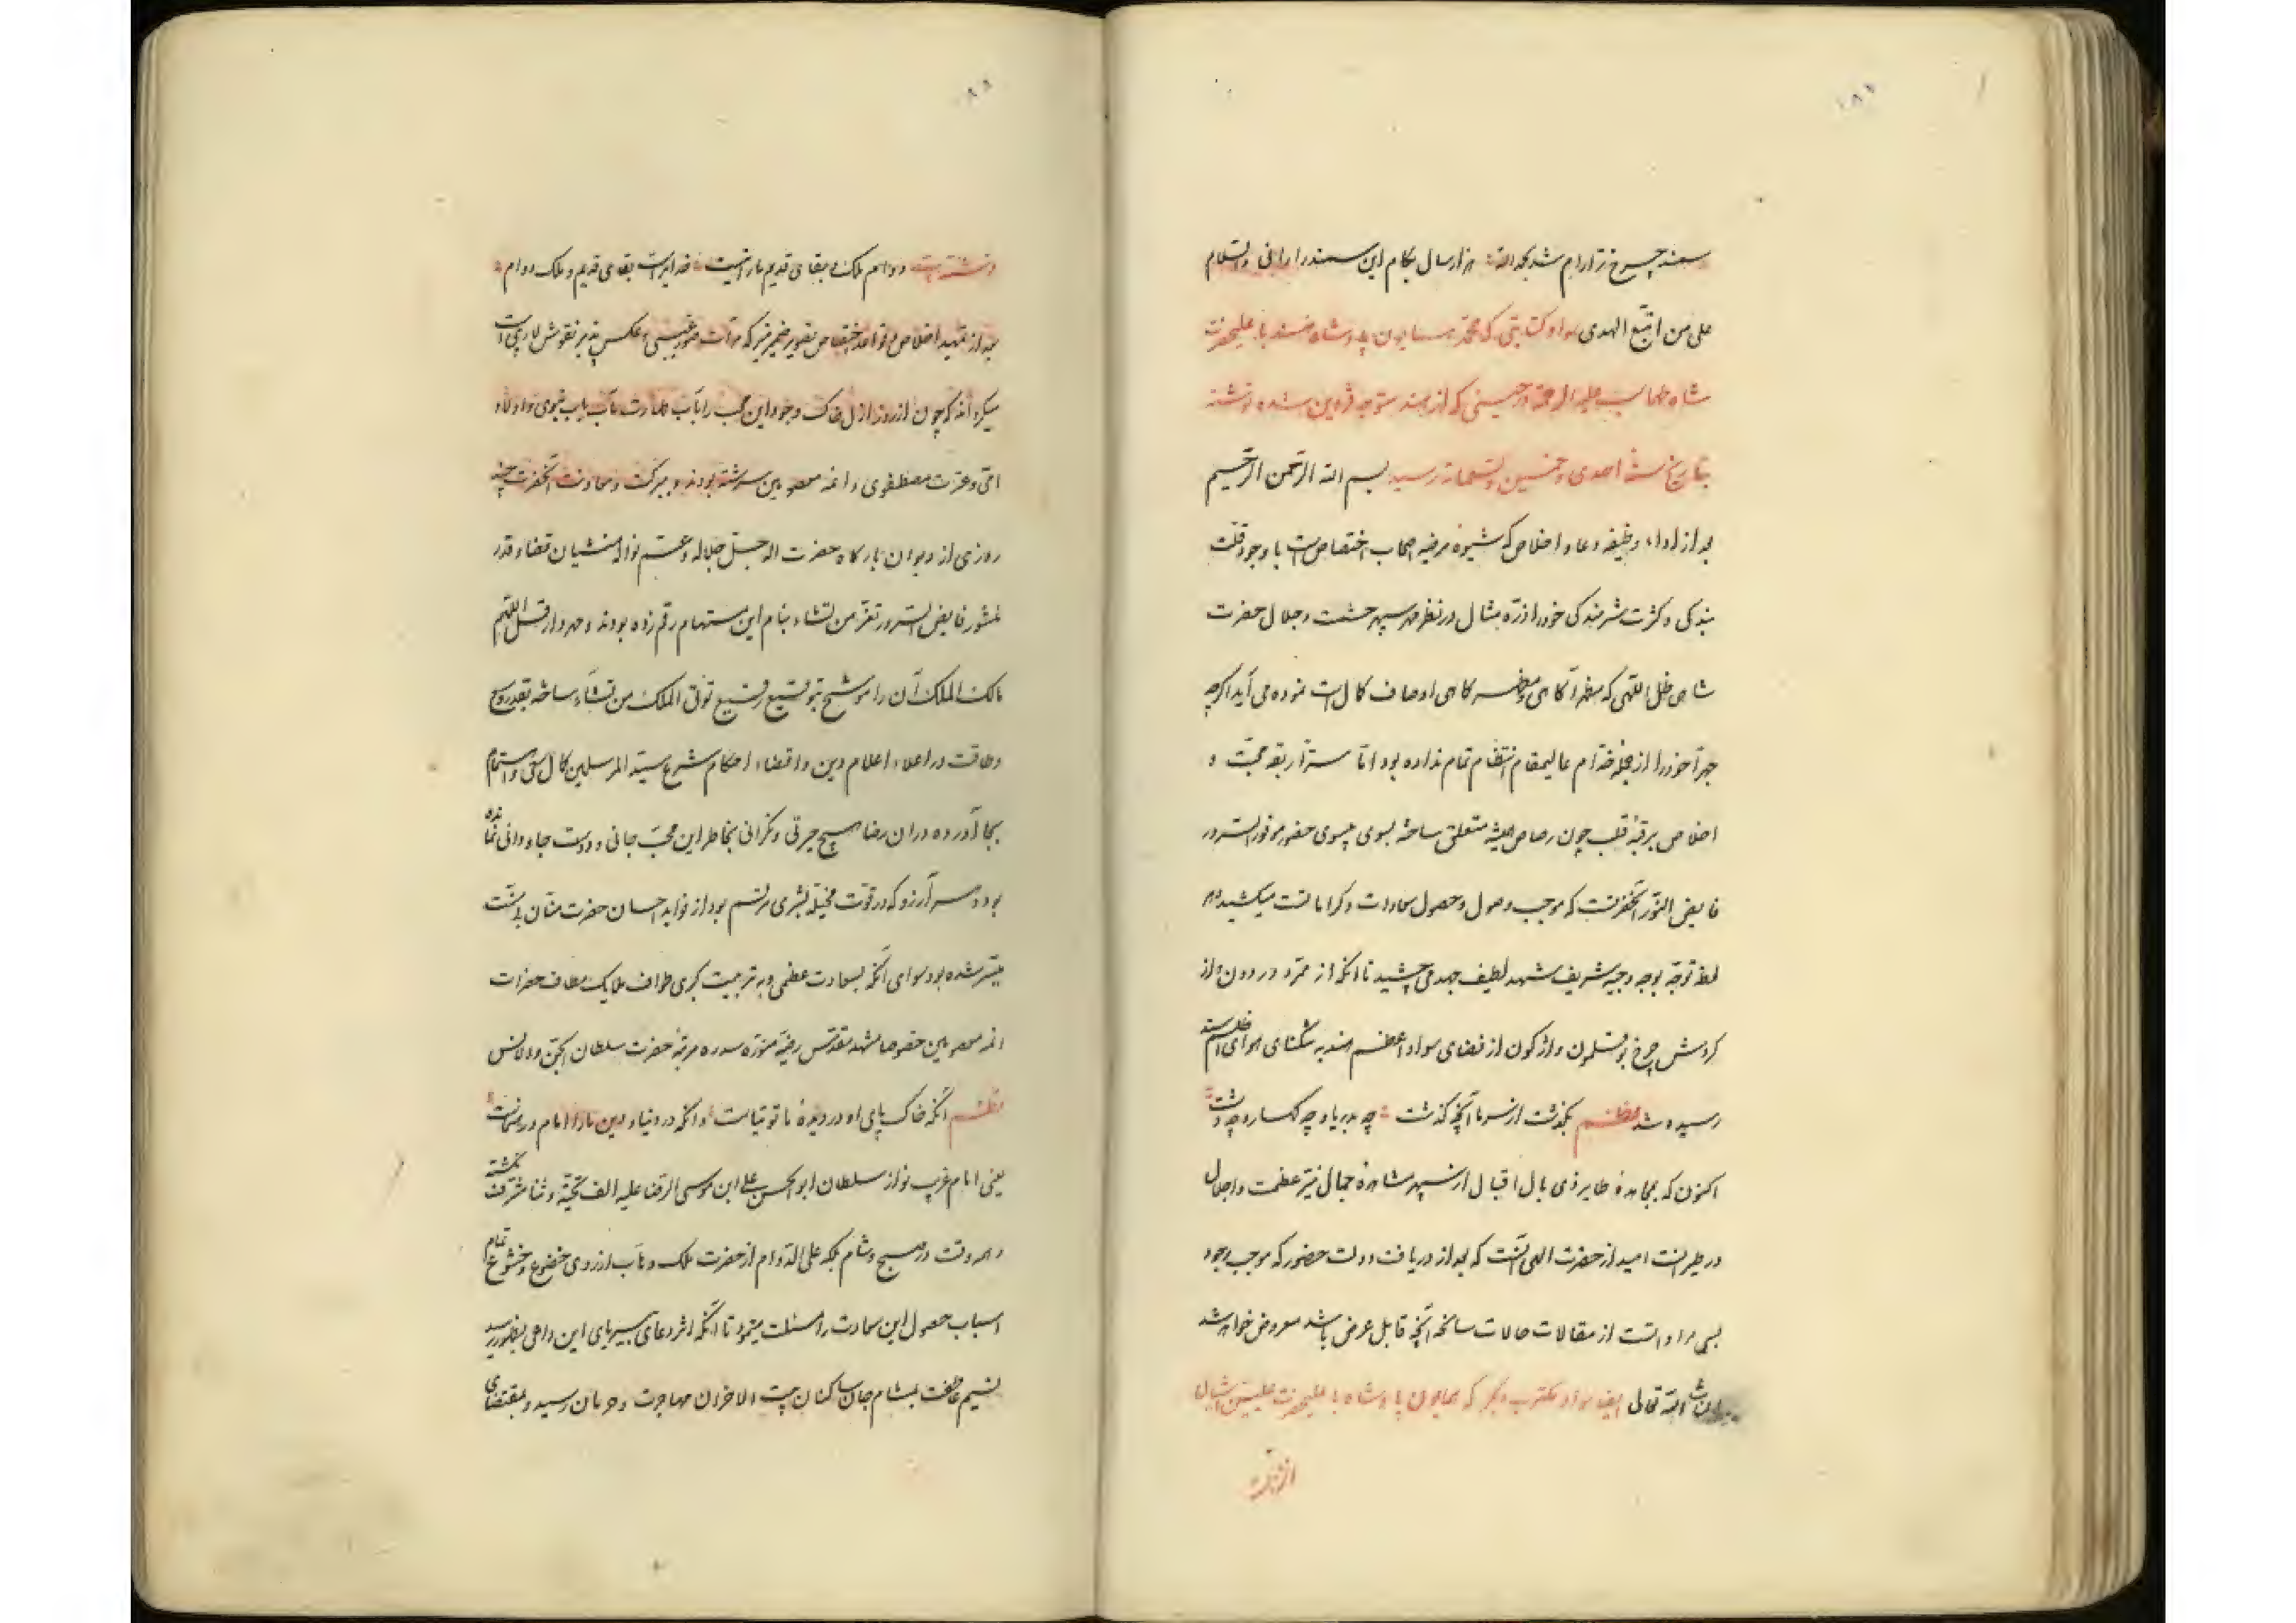 سمند چرخ ترا رام شد بحمد الله هزار سال بكام اين سمند را رانى والسلام
على من اتبع الهدى سواد كتابتى كه محمد همايون پادشاه هند با عليحضرت
شاه طهماسب عليه الرحمة در حينى كه از هند متوجه قزوين شده نوشته
بتاريخ سنة احدى و خمسين و تسعمائة رسيد بسم الله الرحمن الرحيم
بعد از اداء وظيفه دعا و اخلاص كه شيوه مرضيه اصحاب اختصاص است با وجود قلت
بندكى و كثرت شرمندكى خود را ذره مثال در نظر مهر سپهر حشمت و جلال حضرت
شاهى ظل اللهى كه مظهر آكاهى و مظهر كاهى اوصاف كمال است نموده مى آيد اكرچه
جهرا خود را از جمله خدام عاليمقام انتظام تمام نداده بود اما سرا ربقه محبت و
اخلاص برقبه قلب چون رصاص هميشه متعلق ساخته بسوى حضور موفور السرور
فايض النور آنحضرت كه موجب وصول و حصول سعادات و كرامات است ميكشيد و هر
لحظه توجه بوجه وجيه شريف شهد لطيف جهد مى چشيد تا انكه از تمرد در دون و از
كردش چرخ بوقلمون واژكون از فضاى سواد اعظم هند به تنكناى هواى اظلم سند
رسيده شد نظم بكذشت از سر ما آنچه كذشت چه بدريا و چه كهسار و چه دشت
اكنون كه بمجاهده طاير ذى بال اقبال از سپهر مشاهده جمال نير عظمت و اجلال
در طير انست اميد از حضرت الهى آنست كه بعد از دريافت دولت حضور كه موجب وجود
بسى مراداتست از مقالات حالات سانحه آنچه قابل عرض باشد معروض خواهد شد
ان شاء الله تعالى ايضا سواد مكتوب ديكر كه همايون پادشاه با عليحضرت عليين آشيان
نوشته است دوام ملك و بقاى قديم ما را نيست خدايراست بقاى قديم و ملك دوام
بعد از تمهيد اخلاص و قواعد اختصاص بتصوير ضمير منير كه مرآت صور غيبى و عكس پذير نقوش لاريبى است
ميكرداند كه چون از روز ازل خاك وجود اين محب را بآب طهارت مآب باب نبوى و اولاد
امى و عترت مصطفوى و ائمه معصومين سرشته بودند و ببركت و معاونت آنحضرت چند
روزى از ديوان باركاه حضرت اله جل جلاله و عم نواله منشيان قضا و قدر
منشور فايض السرور تعز من تشاء بنام اين مستهام رقم زده بودند و مهردار قل اللهم
مالك الملك آن را موشح بتوقيع رفيع تؤتى الملك من تشاء ساخته بقدر وسع
و طاقت در اعلاء اعلام دين و اقتضاء احكام شرع سيد المرسلين كمال سعى و اهتمام
بجا آورده دران رضا هيچ حيرتى و نكرانى بخاطر اين محب جانى و دوست جاودانى نمانده
بود و هر آرزو كه در قوت مخيله بشرى مرتسم بود از فوايد احسان حضرت منان بى منت
ميسر شده بود سواى آنكه بسعادت عظمى و به تربيت كبرى طواف ملايك مطاف حضرات
ائمه معصومين خصوصا مشهد مقدس رضيه منوره سدره مرتبه حضرت سلطان الجن و الانس
نظم آنكه خاك پاى او در ديده ما توتياست وانكه در دنيا و دين ما را امام و رهنماست
يعنى امام غريب نواز سلطان ابو الحسن على ابن موسى الرضا عليه الف تحية و ثنا مشرف نكشته
و هر وقت در صبح و شام بلكه على الدوام از حضرت ملك وهاب از روى خضوع و خشوع تمام
اسباب حصول اين سعادت را مسئلت مينمود تا آنكه اثر دعاى بيرياى اين داعى بظهور رسيد
نسيم عاطفت بمشام جان ساكنان بيت الاحزان مهاجرت و حرمان رسيد و بمقتضاى